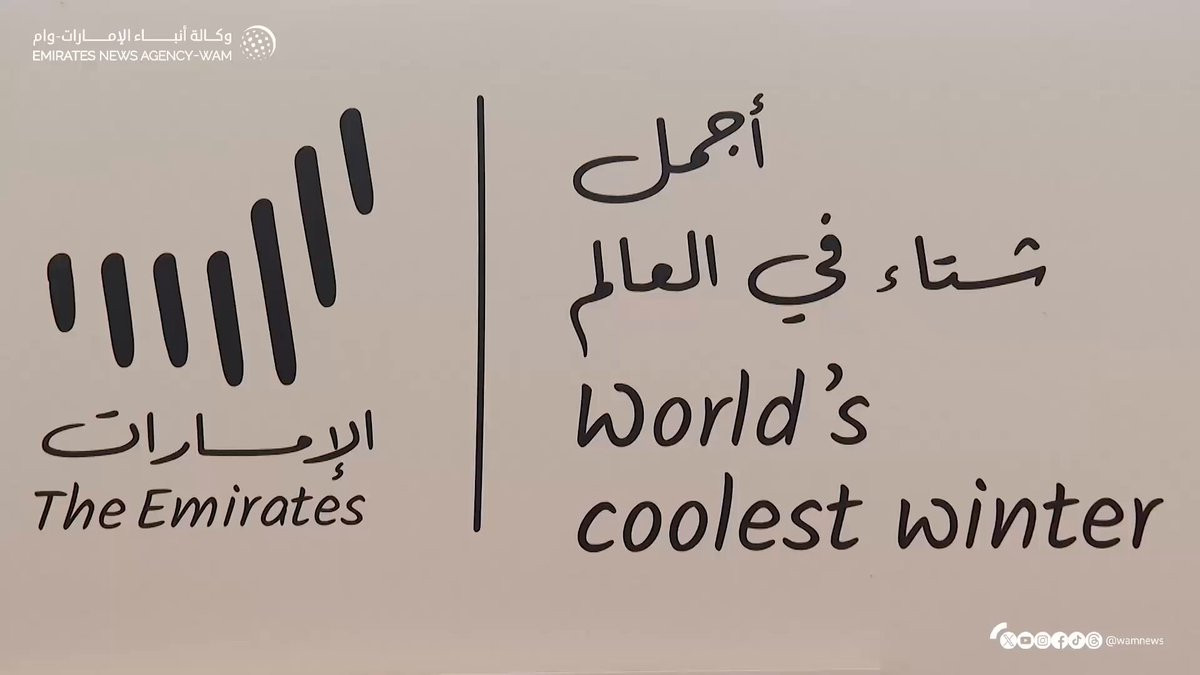 وكالة أنباء الإمارات-وام
EMIRATES NEWS AGENCY-WAM
الإمارات
The Emirates
أجمل
شتاء في العالم
World's
coolest winter
@wamnews